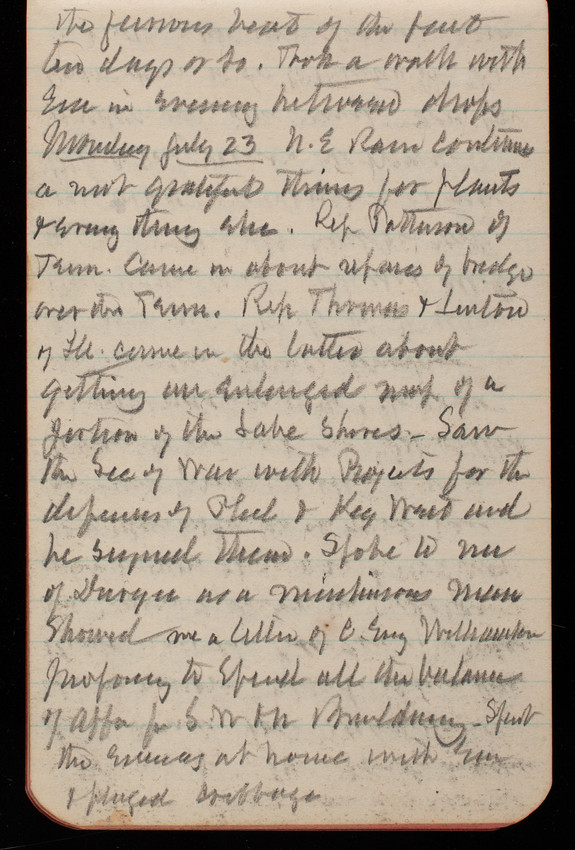 the furious heat of the past
ten days or so. Took a walk with
Em in evening between drops
Monday July 23 N.E Rain continues
a most grateful thing for plants
& every thing else. Rep Patterson of
Tenn. Came in about repairs of bridge
over the Tenn. Rep Thomas & Linton
of Ill. came in the latter about
getting an enlarged map of a
portion of the Lake Shores - Saw
the Sec of War with Projects for the
defenses of Phil & Key West and
he signed them. Spoke to me
of as a man
Showed me a letter of C. Eng Williamson
proposing to Spend all the balance
of Appn for S W & N Building - Spent
the evening at home with Em
& played cribbage